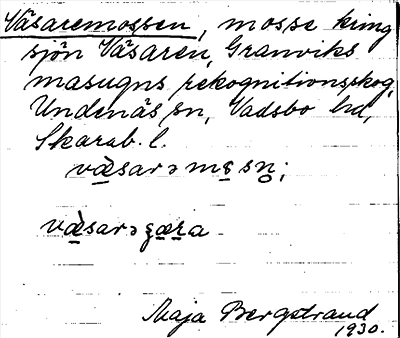 Väsaremossen, mosse kring
sjön Väsaren, Granviks
masugns rekognitionsskog,
Undenäs sn, Vadsbo hd,
Skarab. l.
væ̀sarə mɛsn̥;
væ̀sarə gæra
Maja Bergstrand
1930.